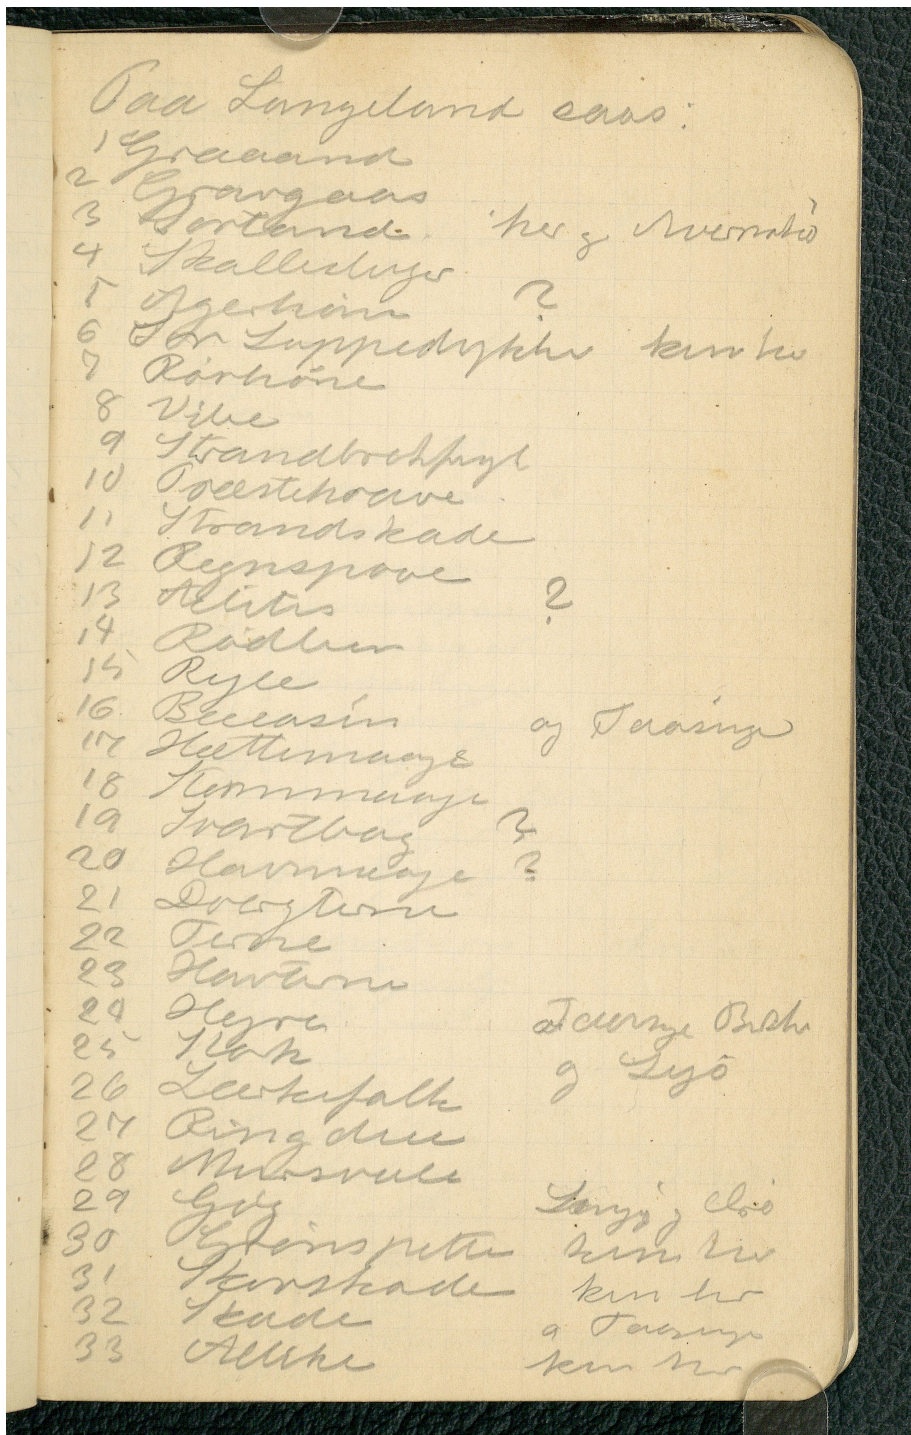 Paa Langeland saas:
1 Graaand
2 Gravgaas
3 Sortand. her og Avernakø
4 Skallesluger
5 Agerhøne ?
6 Lappedykker kun her
7 Rørhøne
8 Vibe
9 Strandbrokfugl
10 Præstekrave
11 Strandskade
12 Regnspove
13 ?
14 Rødben
15 Ryle
16 Beccasin og Taasinge
17 Hættemaage
18 Stormmaage
19 Svartbag ?
20 Havmaage ?
21 Dværgterne
22 Terne
23 Havterne
24 Hejre Taasinge
25 Stork og Lyø
26 Lærkefalk
27 Ringdue
28 Mursvale
29 Gøg og
30 Grønspette kun her
31 Skovskade kun her
32 Skade og Taasinge
33 Allike kun her